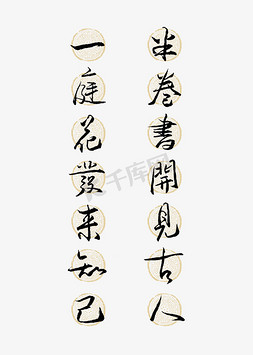 半卷書開見古人
一庭花發来知己
千库网